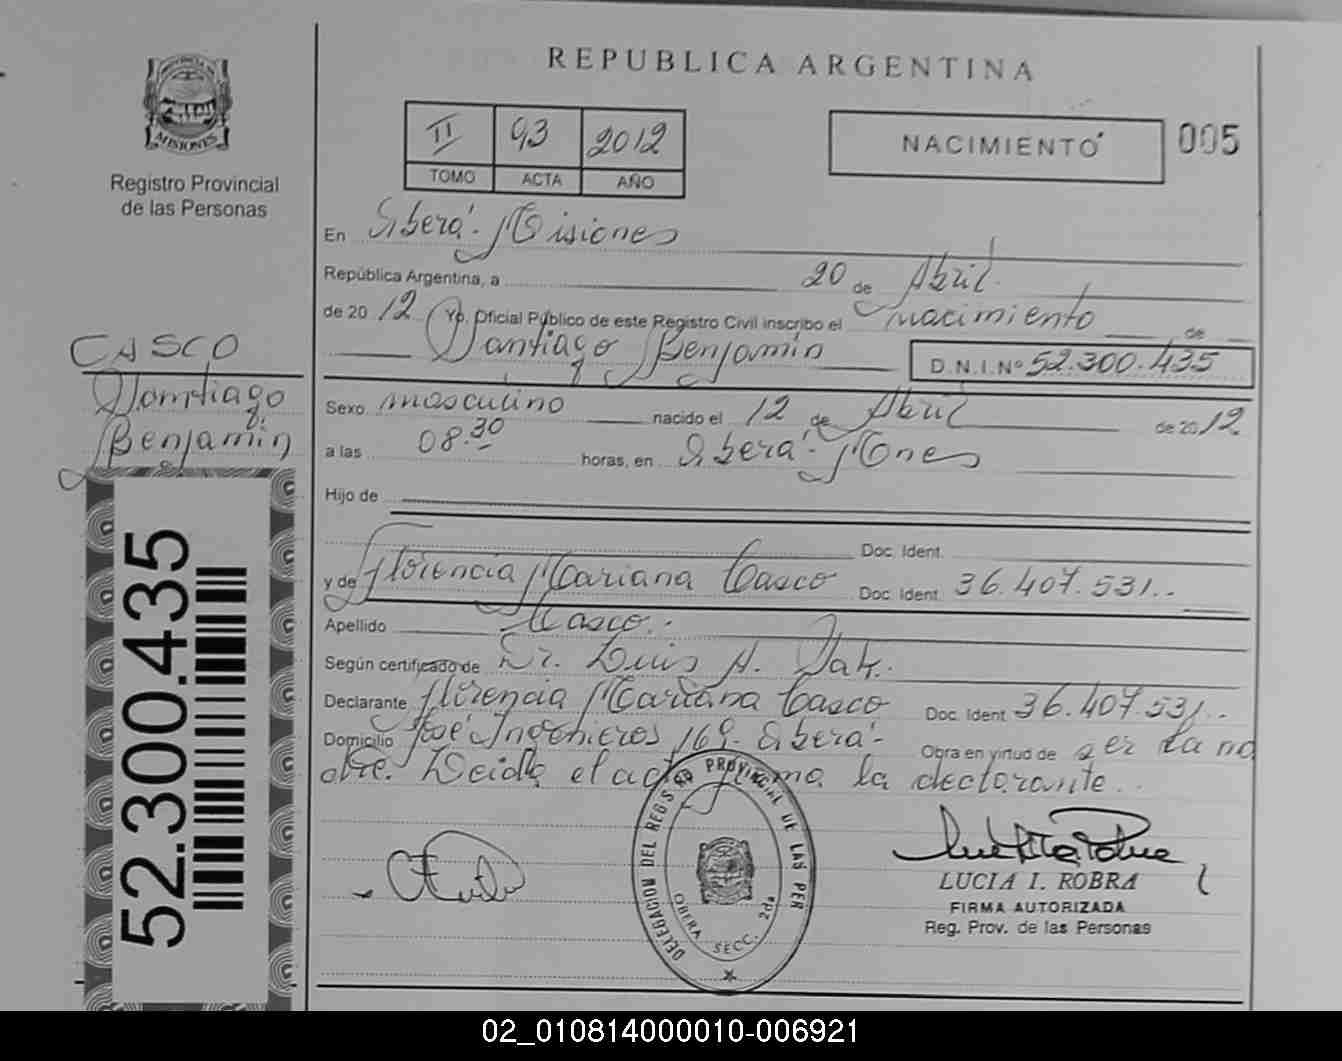 REPUBLICA ARGENTINA
MISIONES
Registro Provincial
de las Personas
II 93 2012
TOMO ACTA AÑO
NACIMIENTO
005
En Oberá - Misiones
República Argentina, a 20 de Abril
de 2012 Yo, Oficial Público de este Registro Civil inscribo el nacimiento de
Santiago Benjamín D.N.I.Nº 52.300.435
CASCO
Santiago
Benjamín
Sexo masculino nacido el 12 de Abril de 2012
a las 08.30 horas, en Oberá - Mones
Hijo de
Doc. Ident.
y de Florencia Mariana Casco Doc. Ident. 36.407.531..
Apellido Casco.-
Según certificado de Dr. Luis A.
Declarante Florencia Mariana Casco Doc. Ident 36.407.531..
Domicilio José Ingenieros 169 - Oberá - Obra en virtud de ser la ma
dre. Leida el acta firma la declarante..
52.300.435
DELEGACION DEL REGIS RO PROVINCIAL DE LAS PER
OBERA SECC. 2da
LUCIA I. ROBRA
FIRMA AUTORIZADA
Reg. Prov. de las Personas
02_010814000010-006921